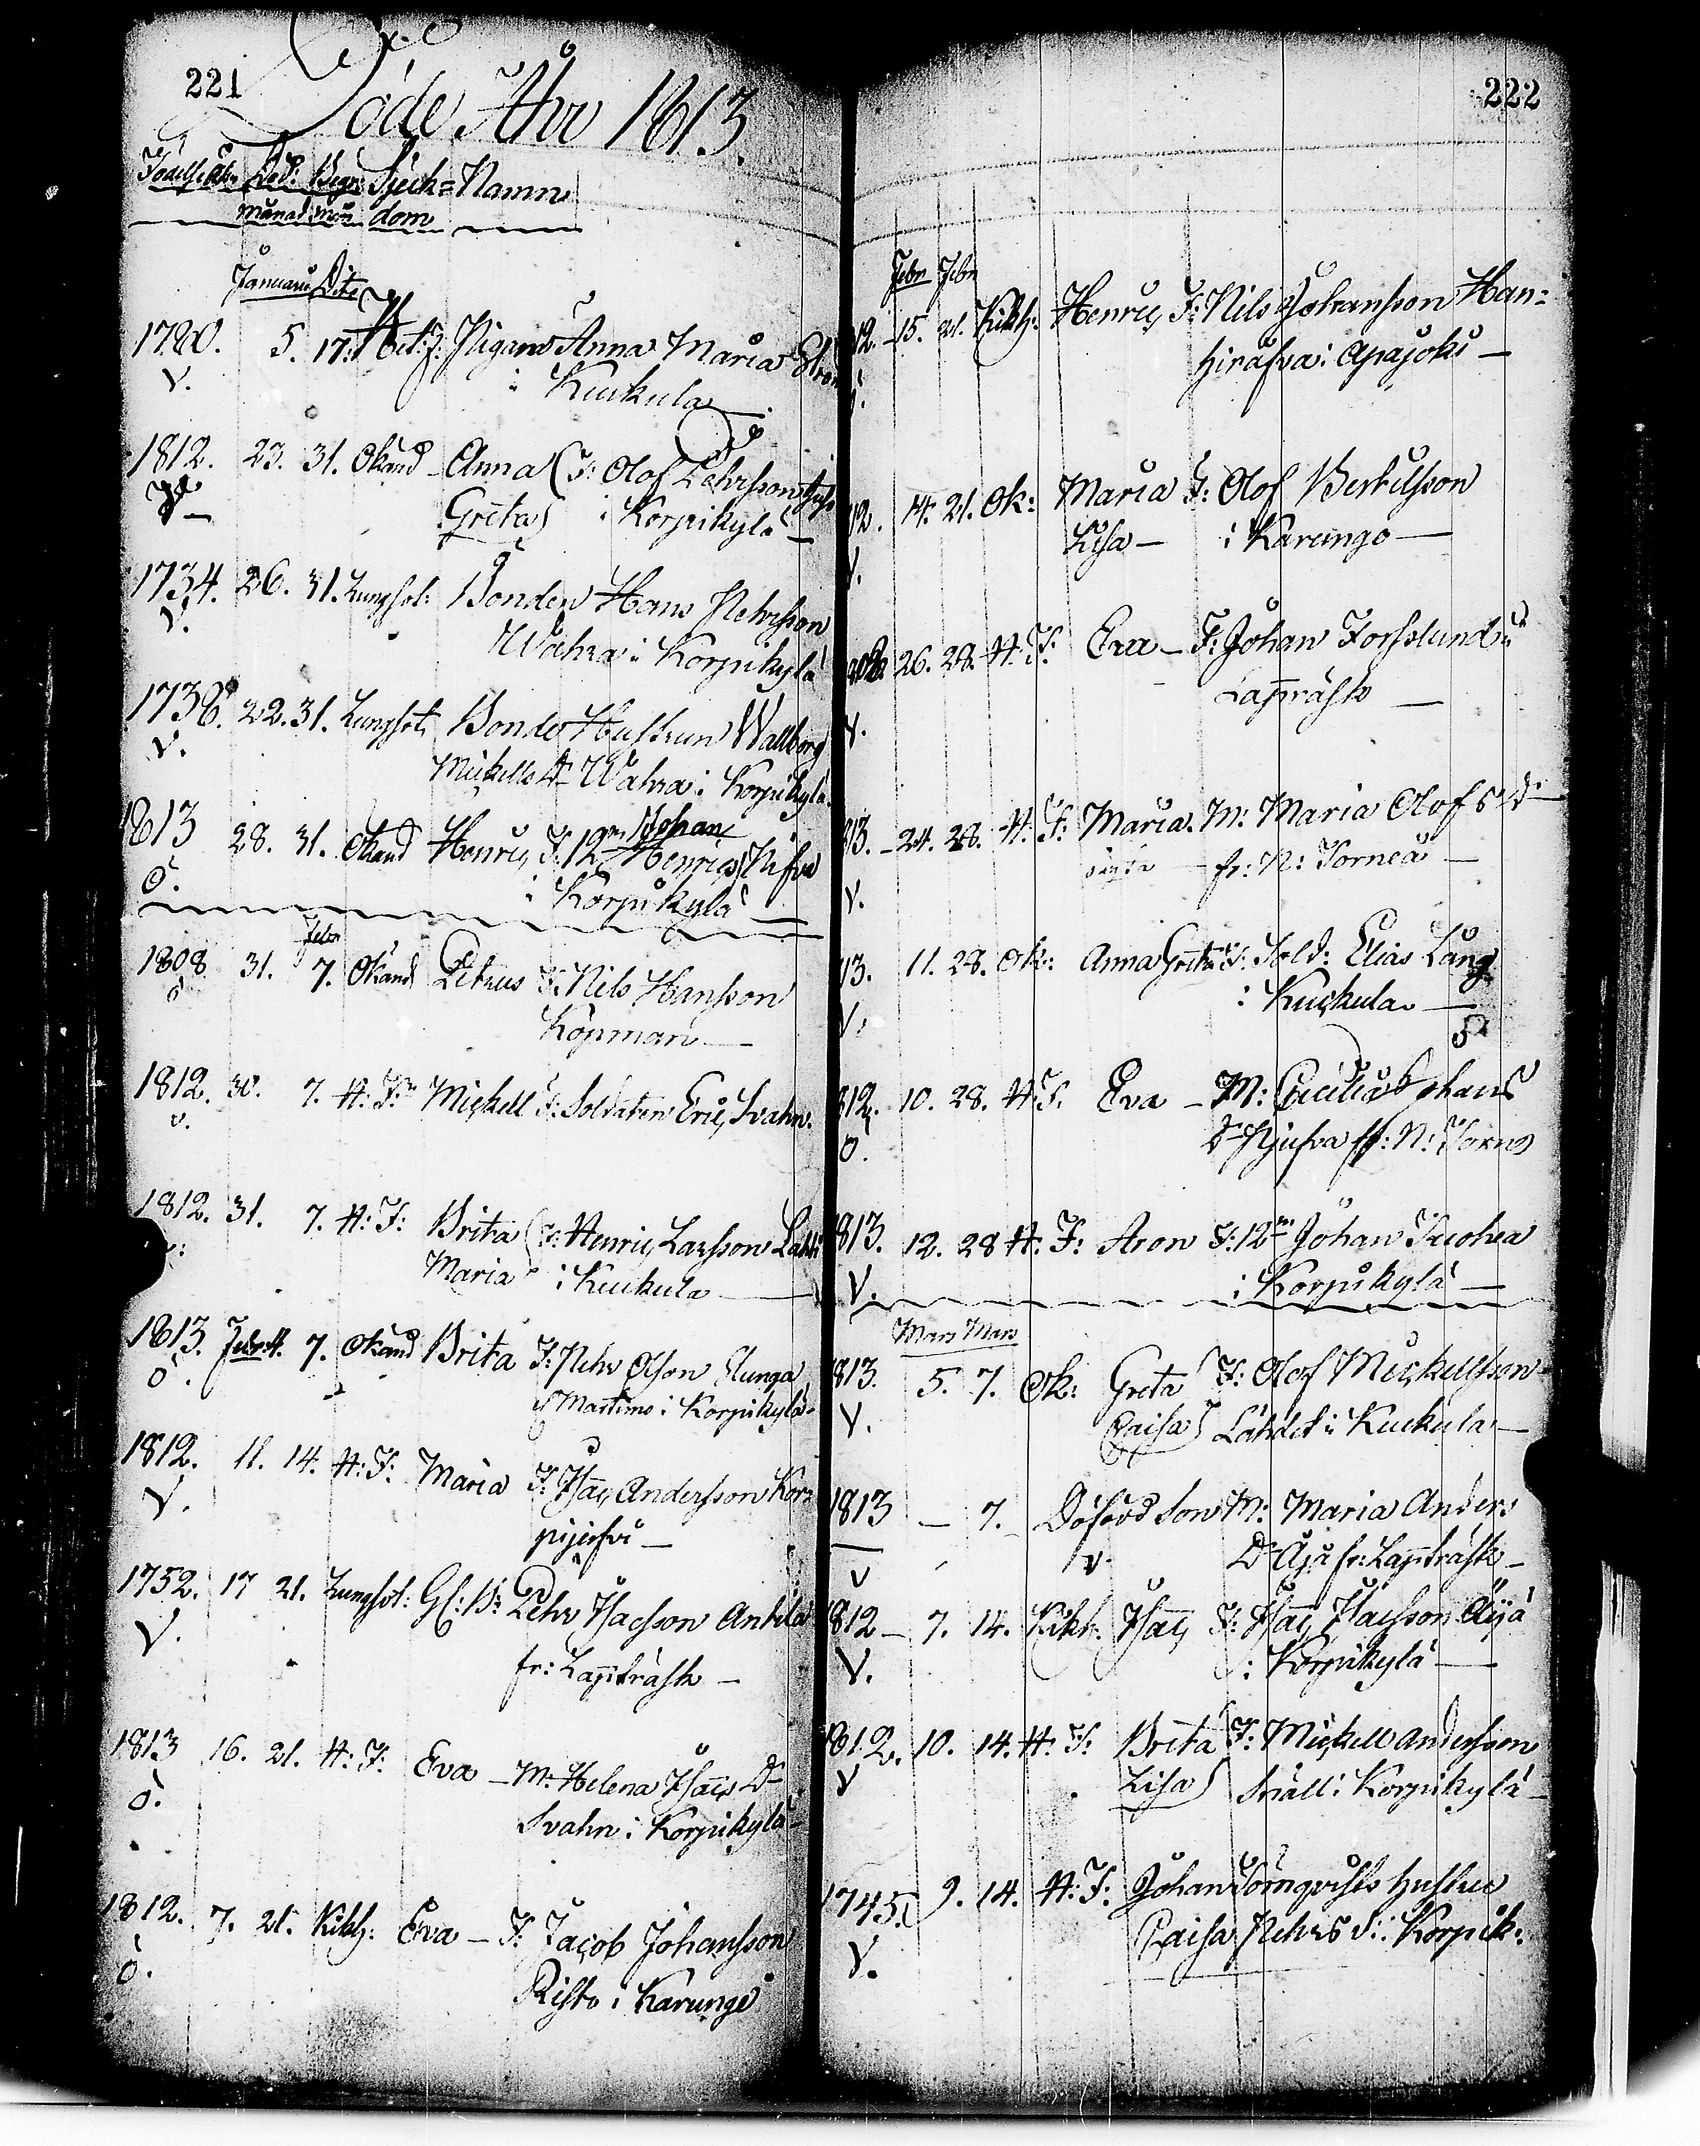 221
Döde År 1813.
Födelse År Död: Begr: Sjuck= Namn
månad mån dom
Januarii Dito
1780. 5. 17. Het: f: Pigan Anna Maria Ström
V. i Kuckula
1812. 23. 31. Okänd Anna F: Olof Pehrsson
V Greta i Korpikylä
1734. 26. 31. Lungsot: Bonden Hans Pehrsson
V. Wahra i Korpikylä
1738. 22. 31. Lungsot: Bonde Hustrun Wallborg
V. Mickells D Wahra i Korpikylä
1813 28. 31. Okänd Henric F: 12m Johan Henrics Nifva
ö. i Korpikylä
Febr
1808 31. 7. Okänd Petrus F. Nils Hansson
ö Köpman
1812. 30. 7. H: F: Mickell F: Soldaten Eric Svahn.
v.
1812. 31. 7. H: F: Brita F: Henric Larsson Lahti
Maria i Kuckula
1813. Febr 4. 7. Okänd Brita F: Pehr Olson
ö. Martimo i Korpikylä
1812. 11. 14. H: F: Maria F: Isac Andersson Kor=
V. pijerfvi
1752. 17 21. Lungsot: Pehr Isacsson Antila
V. fr: Lappträsk
1813 16. 21. H: F: Eva M: Helena Isacs D
ö. Svahn i Korpikylä
1812. 7. 21. Kikh: Eva F: Jacob Johansson
ö. Risto i Karungi
222
Febr Febr
12. 15. 21. Kikh: Henric F: Nils Johansson Han=
hirafva i Apajoki
12. 14. 21. Ok: Maria F: Olof Bertilsson
V. Lisa i Karungo
26. 28. H: F: Eva F: Johan Forsslund i
V. Lappräsk
13. 24. 28. H: F: Maria. M: Maria Olofs D
V. fr: N: Torneå
13. 11. 28. Ok: Anna Greta F: Sold: Elias Lång
V. i Kuckula
812. 10. 28. H: F: Eva M: Cecilia Johans
ö. D fr: N: Torne
813. 12. 28 H: F: Aron F: 12m Johan Tuohea
V. i Korpikylä
Mars Mars
813. 5. 7. Ok: Greta F: Olof Mickellsson
V. Caisa Lahdet i Kuckula
1813 7. Döfödd Son M: Maria Anders
v v. D Äjä fr: Lappträsk
812 7. 14. Kikh. Isac F: Isac Isacsson Äijä
V. i Korpikylä
1812. 10. 14. H: F: Brita F: Mickell Andersson
V Lisa Snäll i Korpikylä
1745. 9. 14. H: F: Johan Törnqvists Hustru
V. Caisa Pehrs i Korpik: